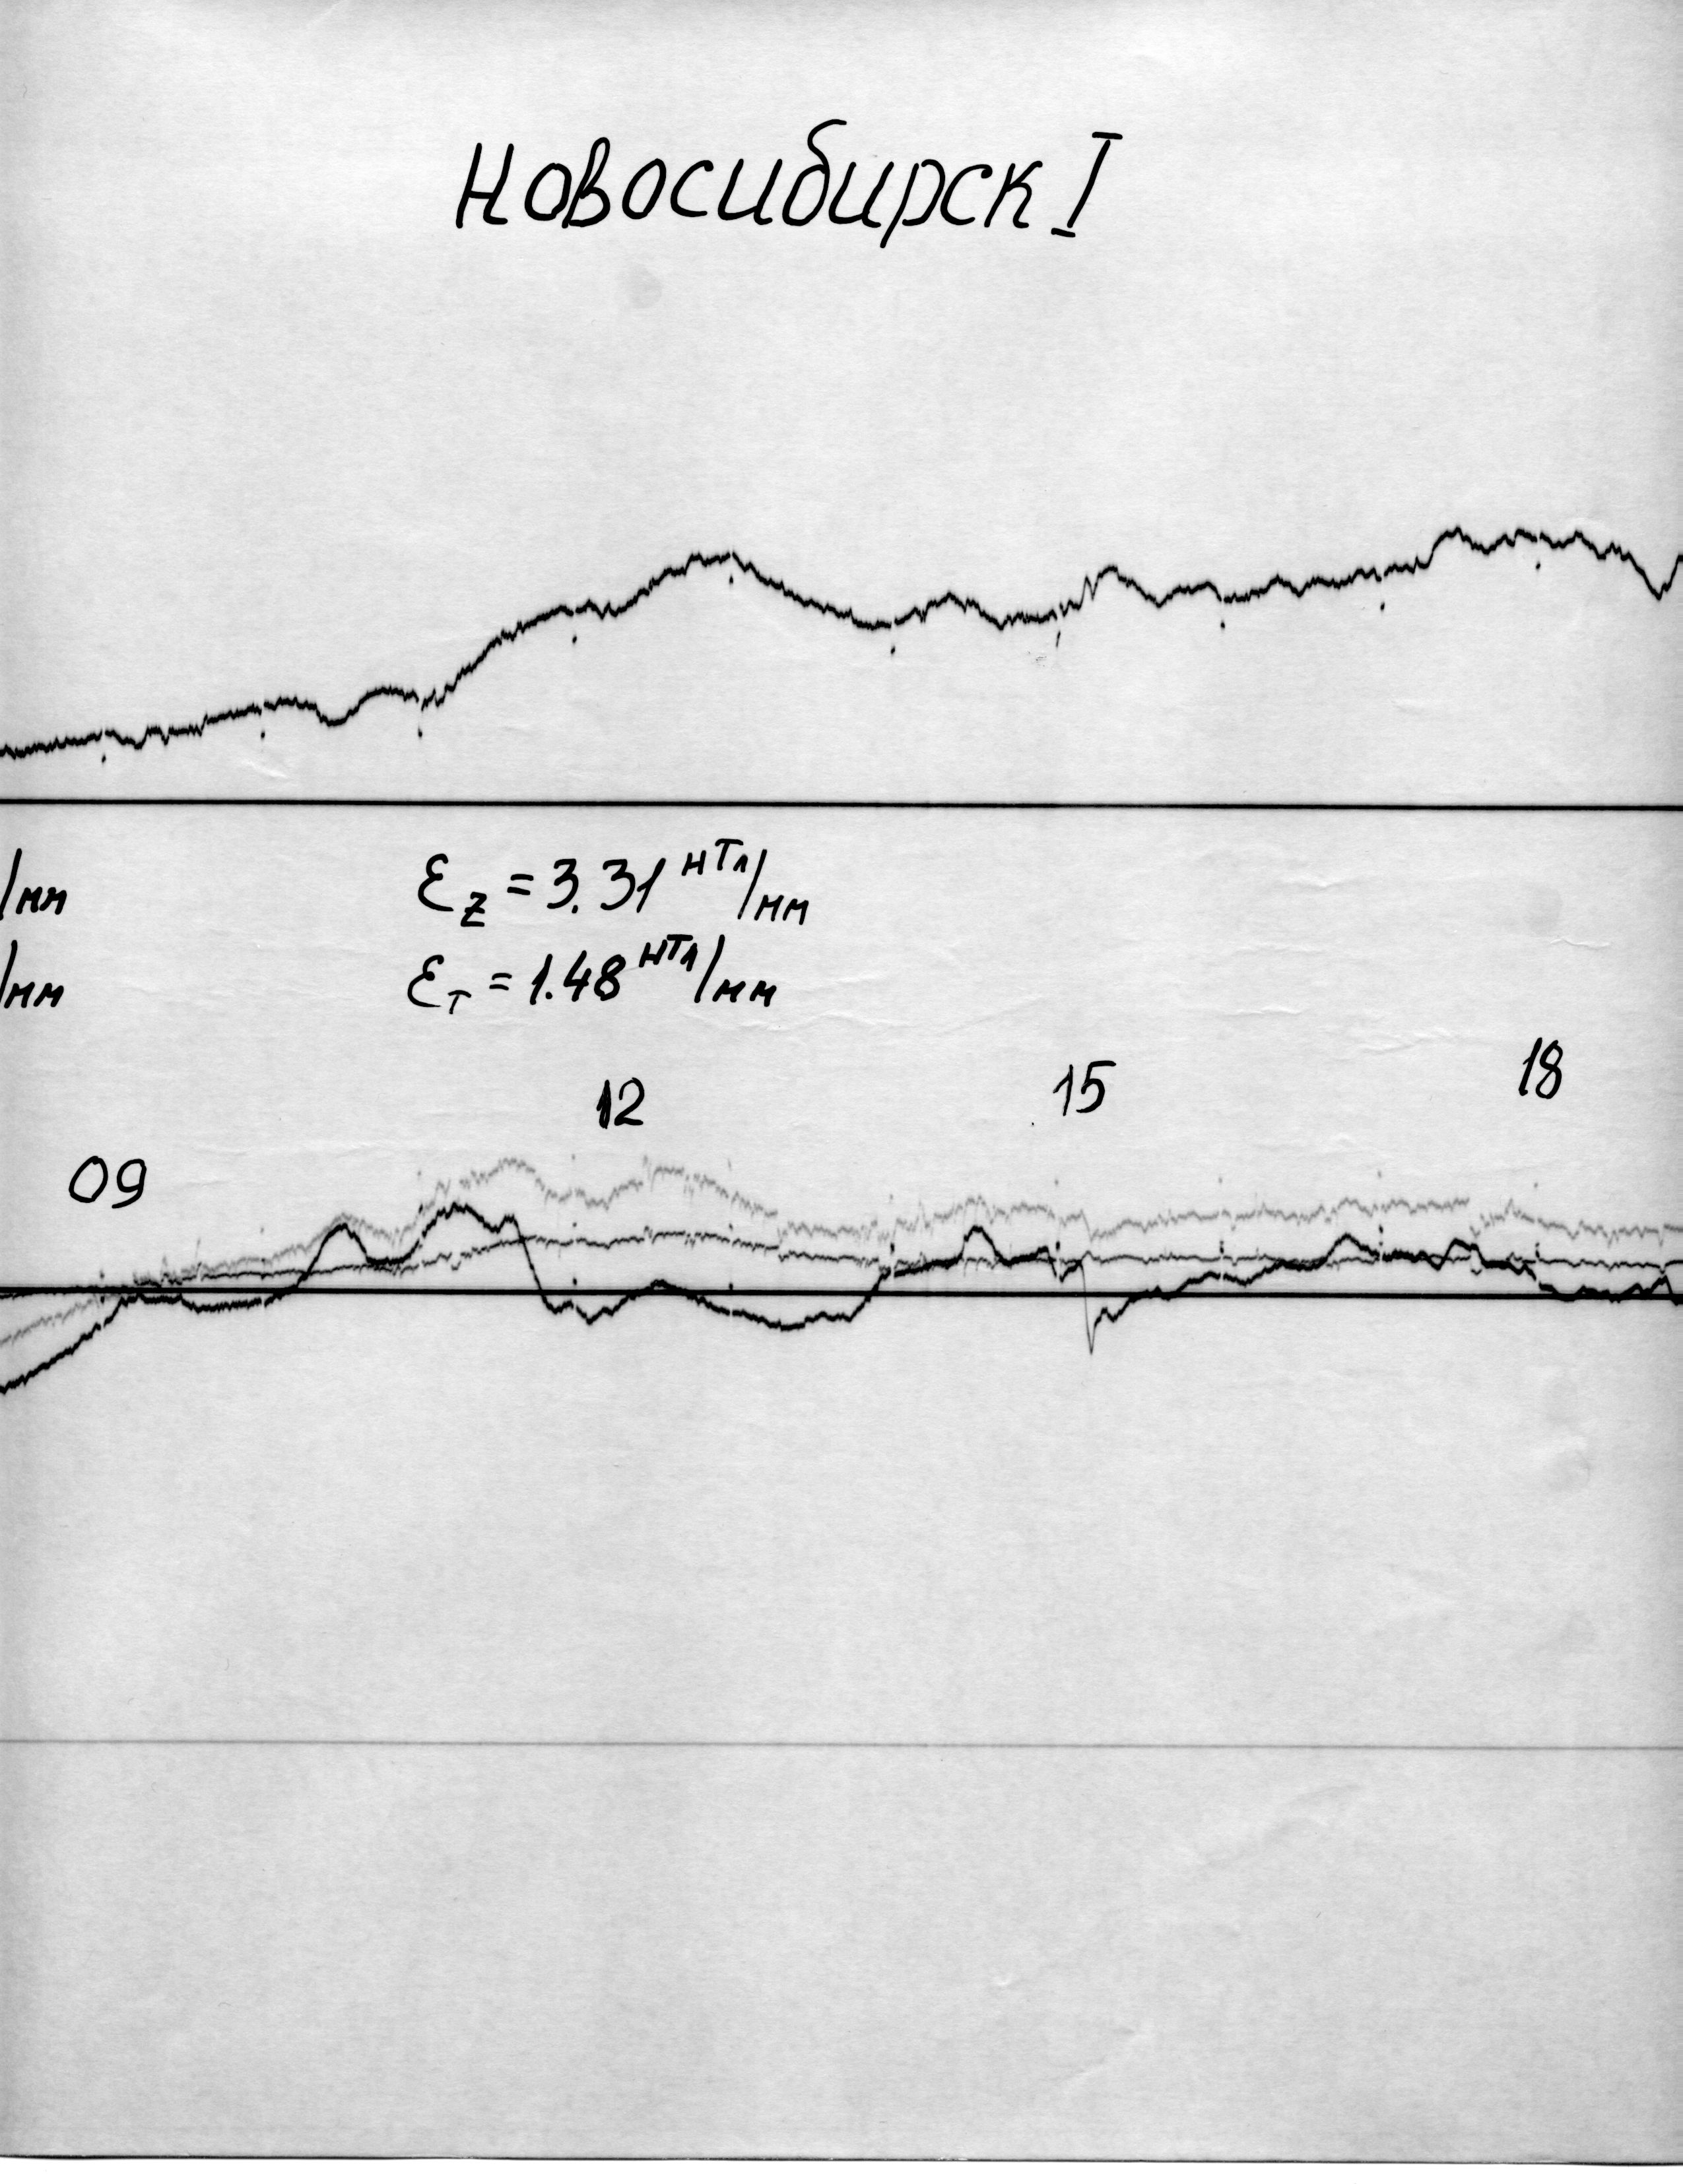 Новосибирск I
/мм
ε_z = 3.31 нТл/мм
/мм
ε_т = 1.48 нТл/мм
12
15
18
09